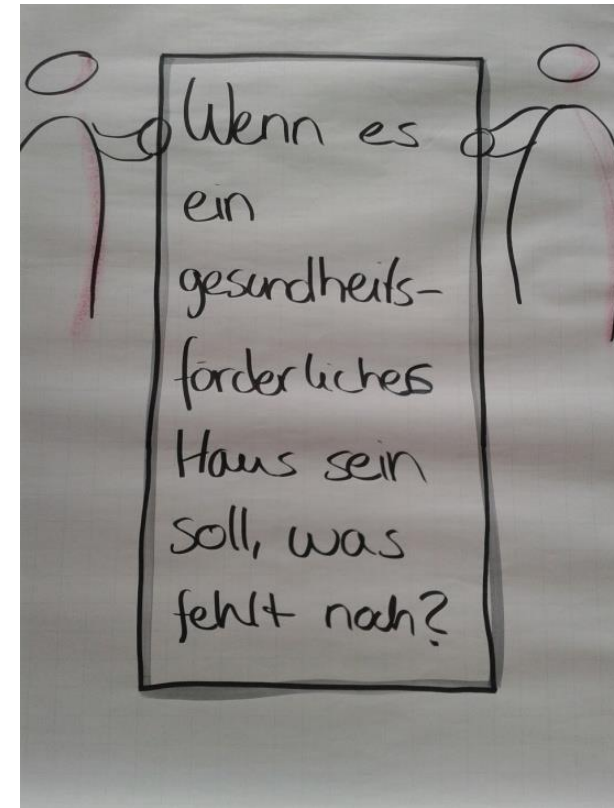 Wenn es
ein
gesundheits-
förderliches
Haus sein
soll, was
fehlt noch?